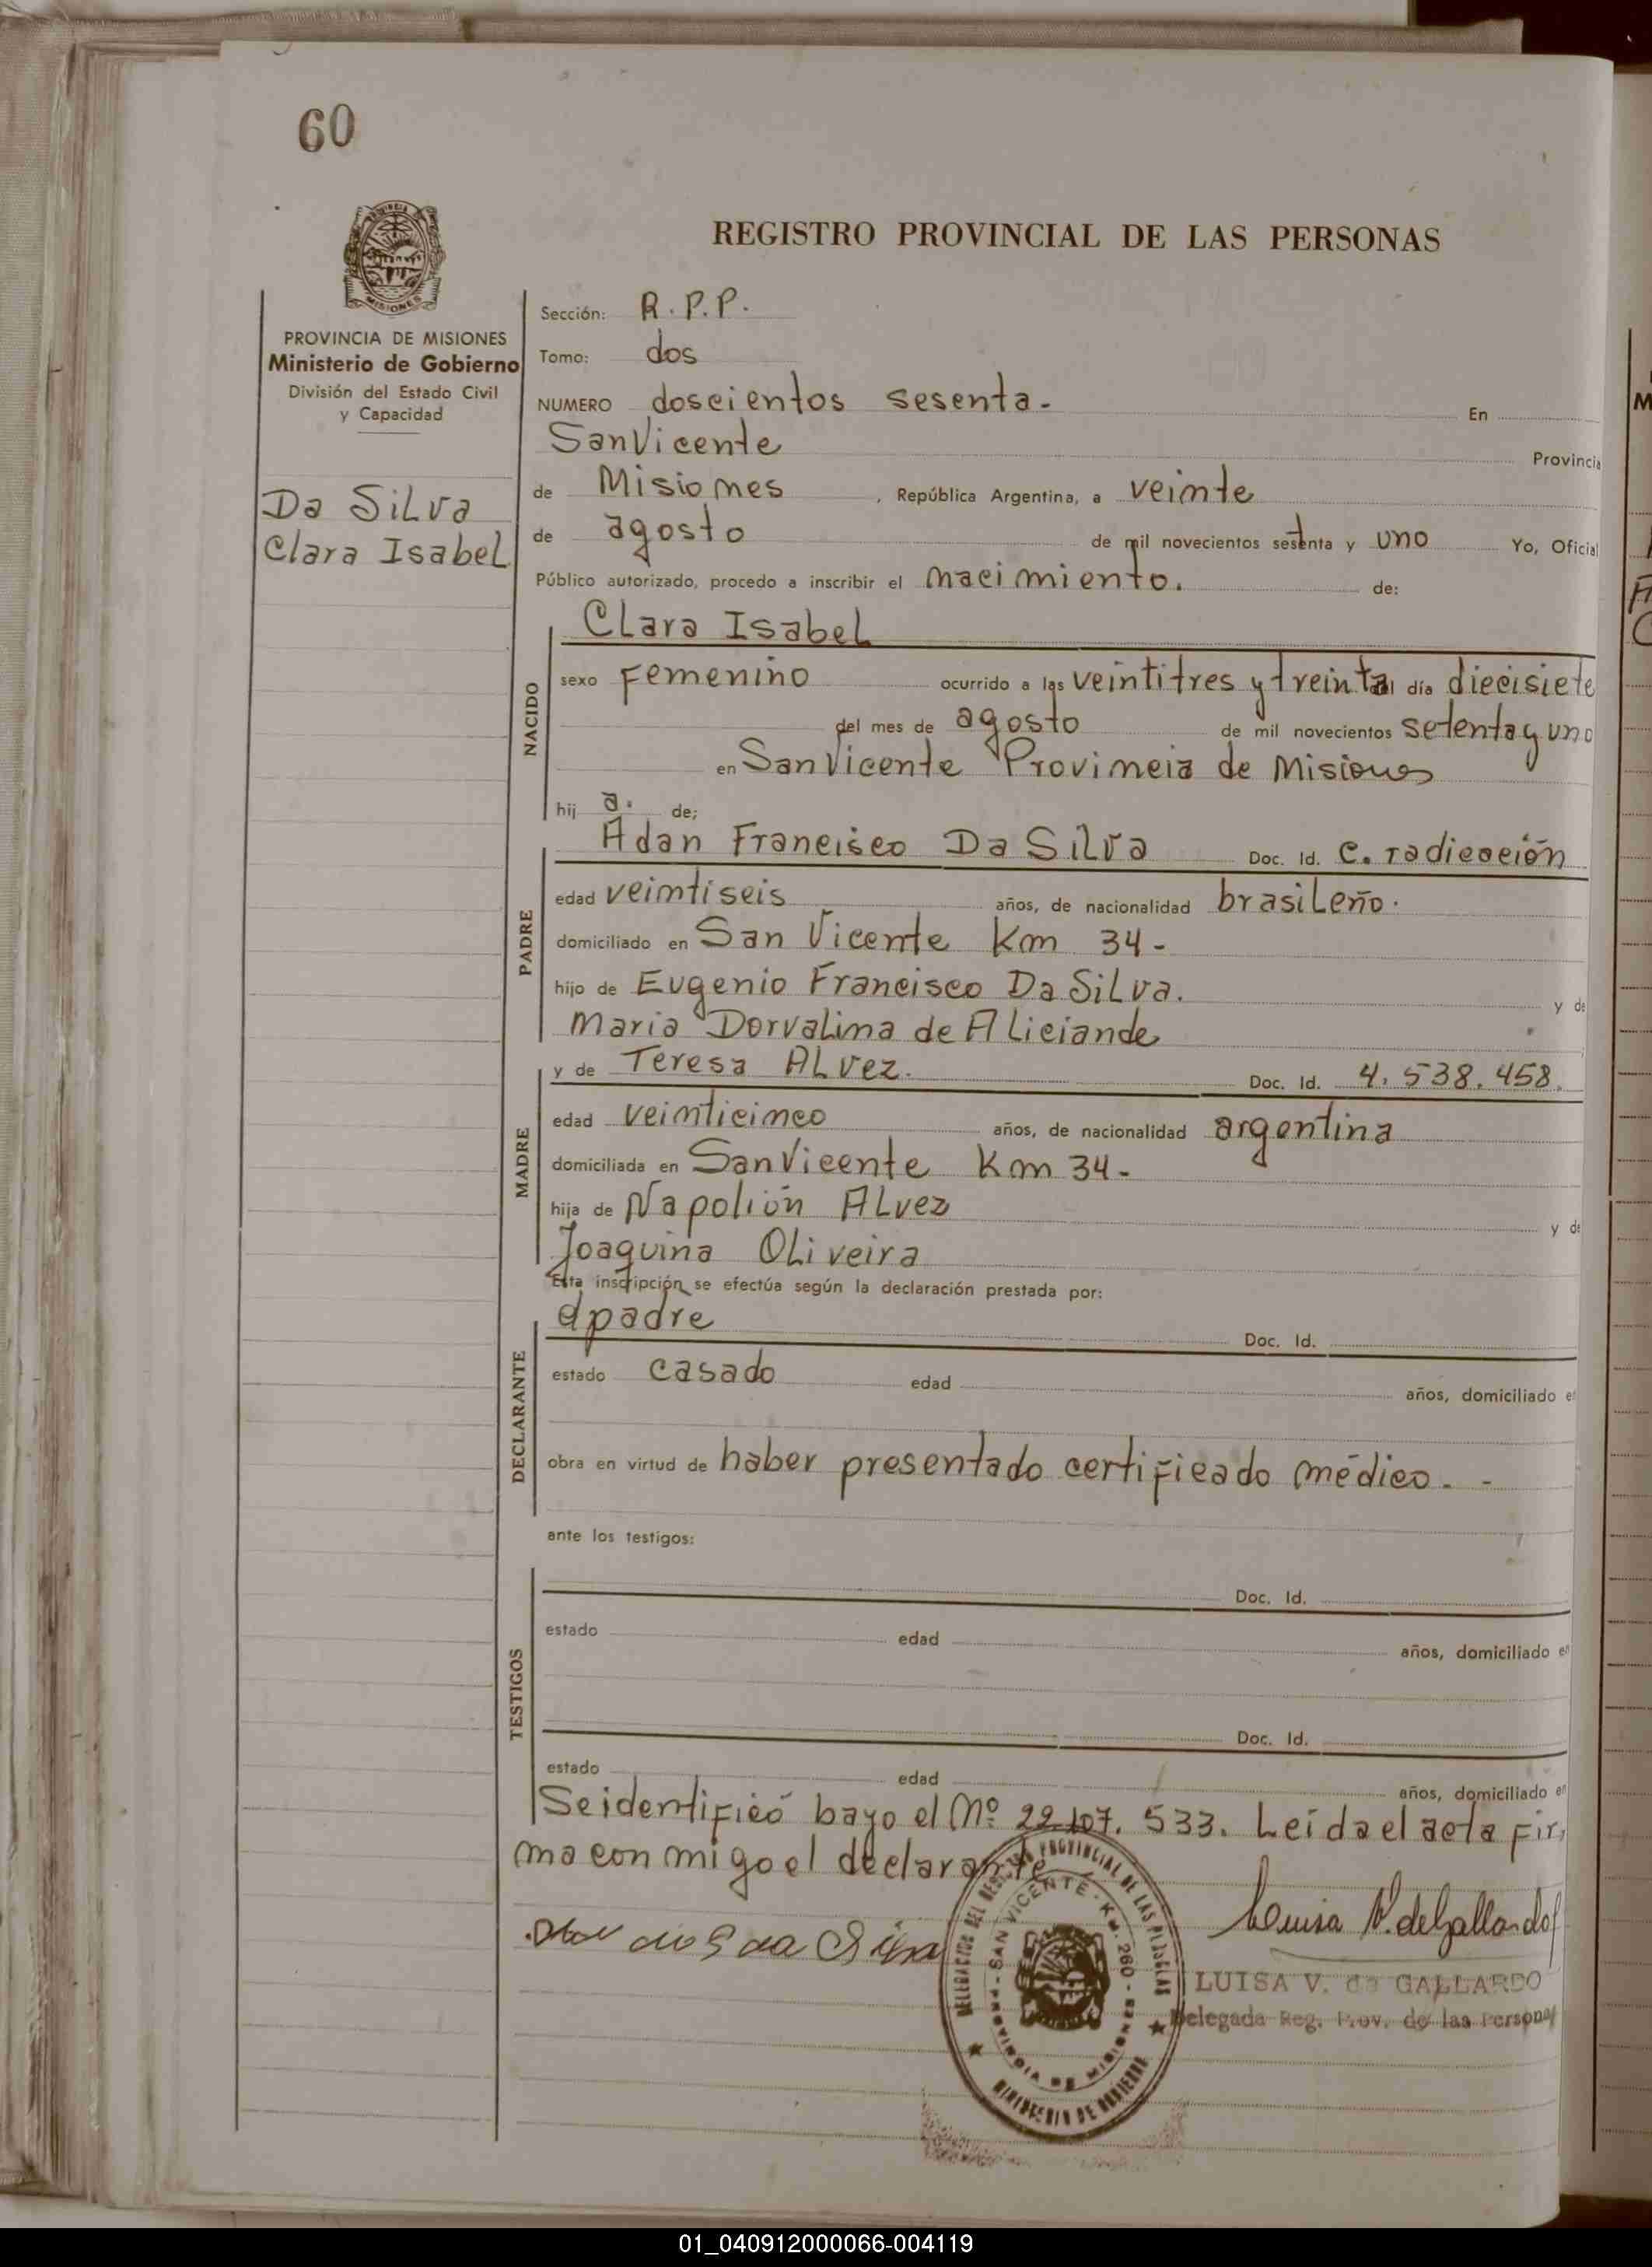 60
REGISTRO PROVINCIAL DE LAS PERSONAS
PROVINCIA DE MISIONES
Ministerio de Gobierno
División del Estado Civil
y Capacidad
Da Silva
Clara Isabel
Sección: R.P.P.
Tomo: dos
NUMERO doscientos sesenta - En
San Vicente Provincia
de Misiones, República Argentina, a veinte
de agosto de mil novecientos setenta y uno Yo, Oficial
Público autorizado, procedo a inscribir el nacimiento. de:
NACIDO
Clara Isabel
sexo Femenino ocurrido a las veintitres y treinta al día diecisiete
del mes de agosto de mil novecientos setenta y uno
en San Vicente Provincia de Misiones
hij a. de;
PADRE
Adan Francisco Da Silva Doc. Id. C. radicación
edad veintiseis años, de nacionalidad brasileño.
domiciliado en San Vicente Km 34-
hijo de Eugenio Francisco Da Silva. y de
Maria Dorvalina de Aliciande
MADRE
y de Teresa Alvez. Doc. Id. 4.538.458.
edad veinticinco años, de nacionalidad argentina
domiciliada en San Vicente Km 34-
hija de Napolión Alvez y de
Joaquina Oliveira
Esta inscripción se efectúa según la declaración prestada por:
DECLARANTE
el padre Doc. Id.
estado casado edad años, domiciliado en
obra en virtud de haber presentado certificado médico. -
ante los testigos:
TESTIGOS
Doc. Id.
estado edad años, domiciliado en
Doc. Id.
estado edad años, domiciliado en
Se identificó bayo el Nº 22.107.533. Leída el acta fir
ma con migo el declarante
da Silva
Luisa V. de Gallardo
LUISA V. de GALLARDO
Delegada Reg. Prov. de las Personas
DELEGACION DEL REGISTRO PROVINCIAL DE LAS PERSONAS
SAN VICENTE - KM. 260 - PROVINCIA DE MISIONES
MINISTERIO DE GOBIERNO
01_040912000066-004119